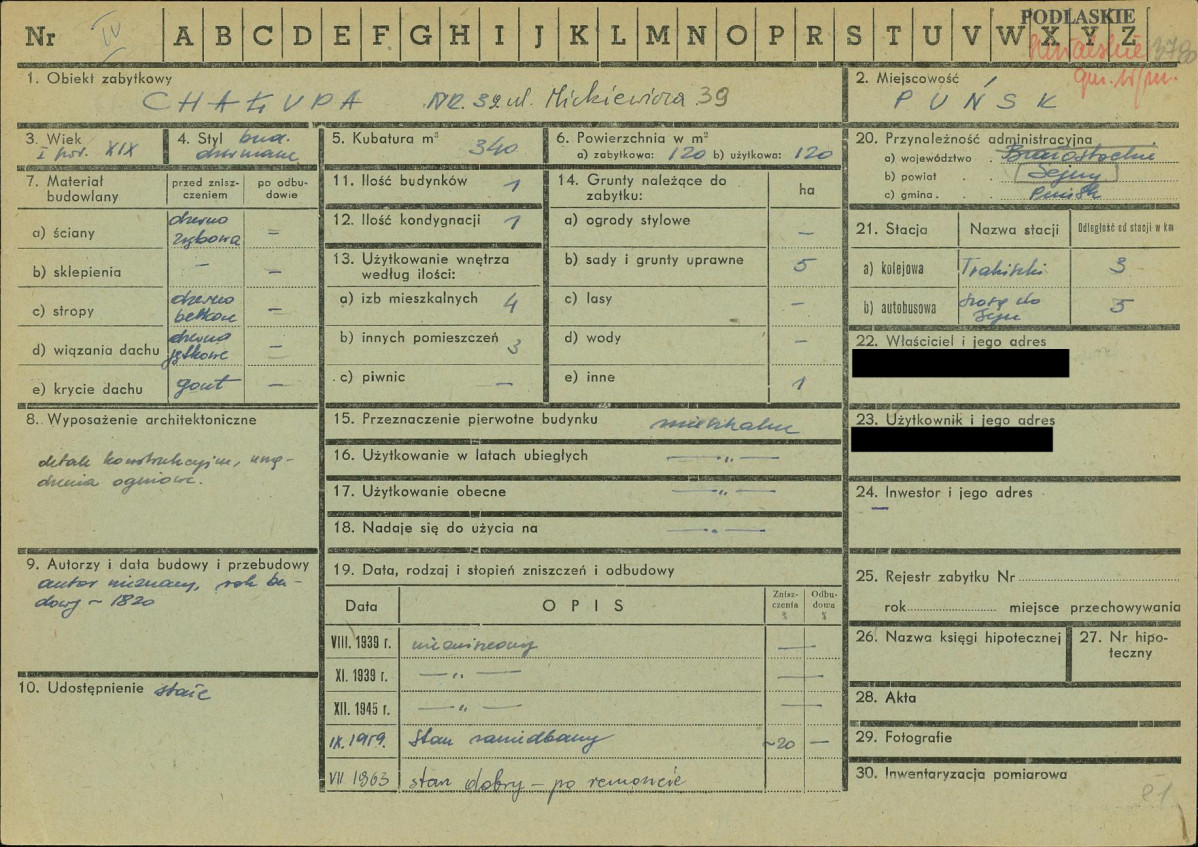 Nr IV A B C D E F G H I J K L M N O P R S T U V W X Y Z
PODLASKIE
1. Obiekt zabytkowy
CHAŁUPA NR. 32 ul. Mickiewicza 39
2. Miejscowość
PUŃSK
3. Wiek
I poł. XIX
4. Styl bud.
drewniane
5. Kubatura m³ 340
6. Powierzchnia w m²
a) zabytkowa: 120 b) użytkowa: 120
7. Materiał budowlany
przed zniszczeniem
po odbudowie
a) ściany drewno
zrębowa =
b) sklepienia – –
c) stropy drewno
belkowe –
d) wiązania dachu drewno
jętkowe –
e) krycie dachu gont –
8. Wyposażenie architektoniczne
detale konstrukcyjne, urzą-
dzenia ogniowe.
9. Autorzy i data budowy i przebudowy
autor nieznany, rok bu-
dowy ~ 1820
10. Udostępnienie stałe
11. Ilość budynków 1
12. Ilość kondygnacji 1
13. Użytkowanie wnętrza
według ilości:
a) izb mieszkalnych 4
b) innych pomieszczeń 3
c) piwnic –
14. Grunty należące do
zabytku:
ha
a) ogrody stylowe –
b) sady i grunty uprawne 5
c) lasy –
d) wody –
e) inne 1
15. Przeznaczenie pierwotne budynku mieszkalne
16. Użytkowanie w latach ubiegłych —„—
17. Użytkowanie obecne —„—
18. Nadaje się do użycia na —„—
19. Data, rodzaj i stopień zniszczeń i odbudowy
Data OPIS Zniszczenia % Odbudowa %
VIII. 1939 r. niezniszczony —
XI. 1939 r. —„— —
XII. 1945 r. —„— —
IX. 1959. Stan zaniedbany ~20 –
VII 1963 stan dobry – po remoncie
20. Przynależność administracyjna
a) województwo Białostockie
b) powiat Sejny
c) gmina Puńsk
21. Stacja Nazwa stacji Odległość od stacji w km
a) kolejowa Trakiszki 3
b) autobusowa szosa do
Sejn 5
22. Właściciel i jego adres
23. Użytkownik i jego adres
24. Inwestor i jego adres
–
25. Rejestr zabytku Nr
rok miejsce przechowywania
26. Nazwa księgi hipotecznej
27. Nr hipo-
teczny
28. Akta
29. Fotografie
30. Inwentaryzacja pomiarowa